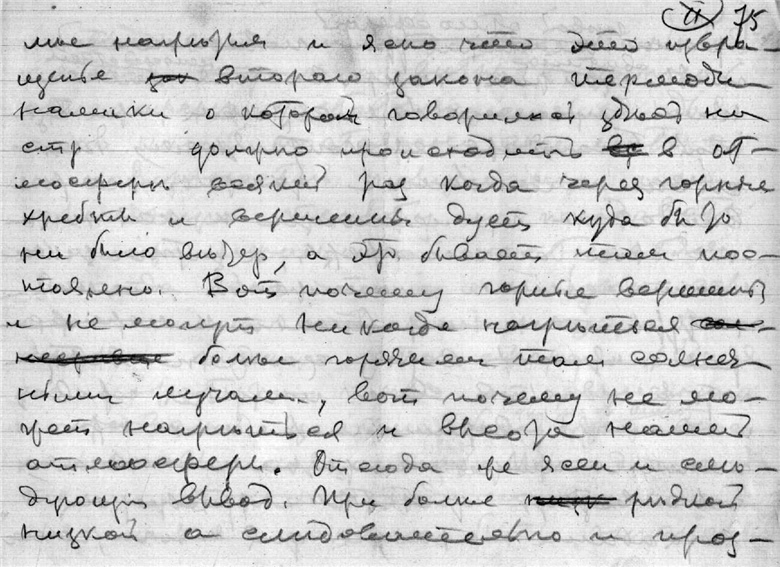 II 75
мые нагрыря и ясно что это извра-
щенье второго закона термоди-
намики о котором говорилось здесь на
стр должно происходить в ат-
мосфере всякий раз когда через горные
хребты и вершины дует куда бы то
ни было ветер, а это бывает там пос-
тоянно. Вот почему горные вершины
и не могут никогда нагрыться
более горячими там солнеч-
ными лучами, вот почему не мо-
жет нагрыться и высота нашей
атмосферы. Отсюда же ясен и сле-
дующий вывод. При более редкой
низкой а следовательно и проз-